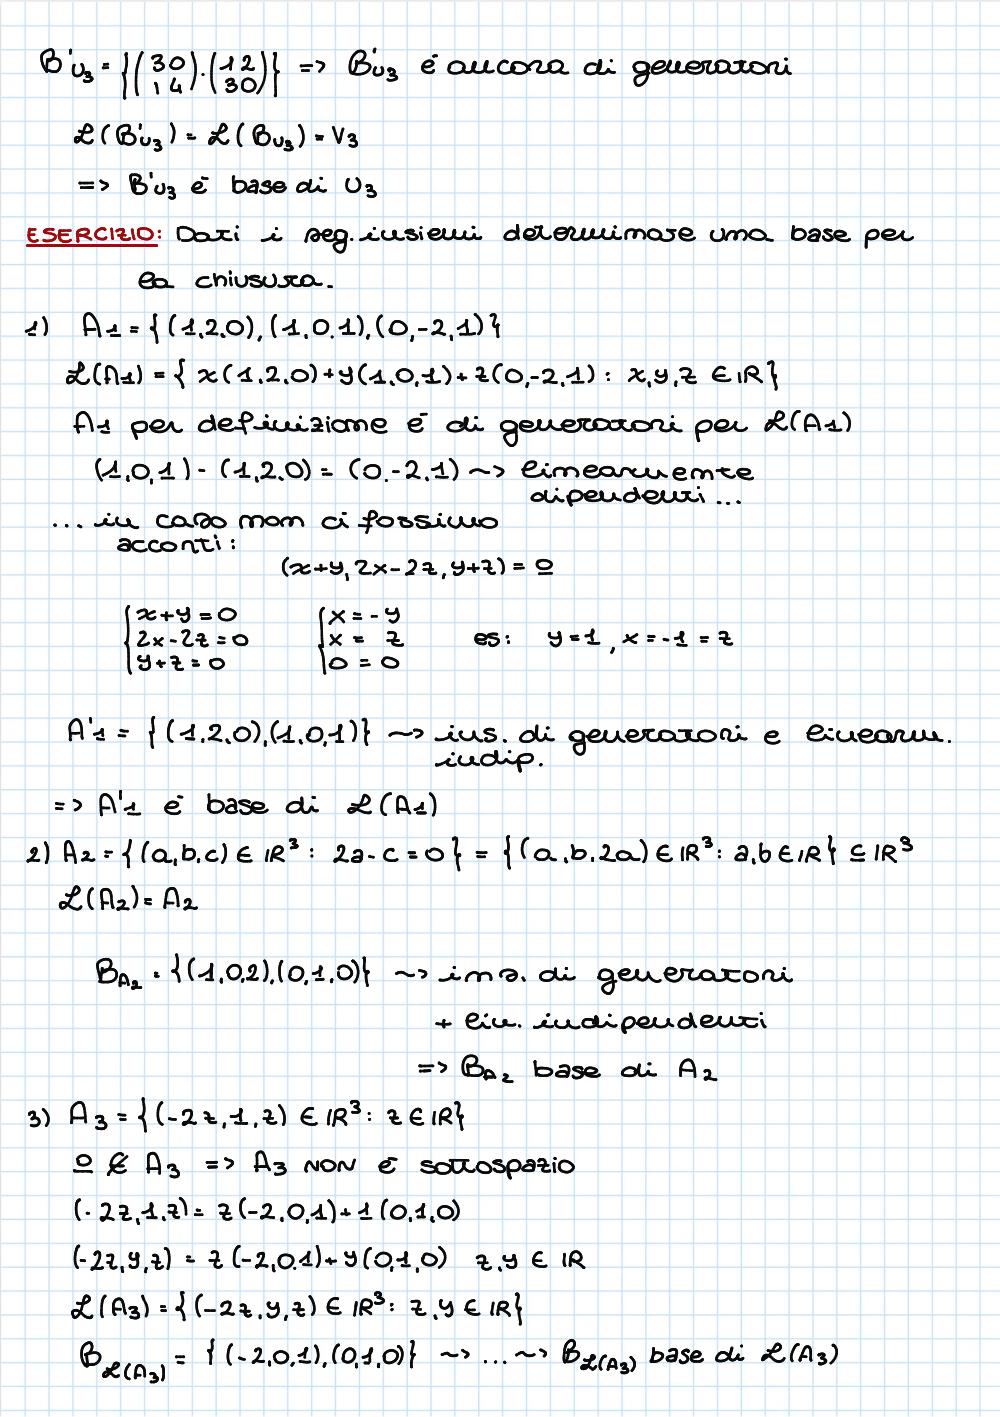 B'U3 = {(3 0 1 4).(1 2 3 0)} => B'U3 é ancora di generatori
L(B'U3) = L(BU3) = V3
=> B'U3 è base di U3
ESERCIZIO: Dati i seg. insiemi determinare una base per
la chiusura.
1) A1 = {(1.2.0),(1.0.1),(0,-2,1)}
L(A1) = { x(1.2.0)+y(1,0,1)+z(0,-2,1) : x,y,z ∈ IR}
A1 per definizione è di generatori per L(A1)
(1,0,1) - (1,2,0) = (0.-2,1) ~> linearmente
dipendenti ...
... in caso non ci fossimo
acconti :
(x+y, 2x-2z, y+z) = 0
{x+y=0 {x = -y
2x-2z=0 x = z es: y=1, x=-1=z
y+z=0 0 = 0
A'1 = {(1.2.0),(1.0,1)} ~> ins. di generatori e linearm.
indip.
=> A'1 è base di L(A1)
2) A2 = {(a,b,c) ∈ IR³ : 2a-c=0} = {(a.b.2a) ∈ IR³: a,b ∈ IR} ⊆ IR³
L(A2) = A2
BA2 = {(1,0,2),(0,1,0)} ~> ins. di generatori
+ lin. indipendenti
=> BA2 base di A2
3) A3 = {(-2z,1,z) ∈ IR³: z ∈ IR}
0 ∉ A3 => A3 NON è sottospazio
(-2z,1,z) = z(-2,0,1)+1(0,1,0)
(-2z,y,z) = z(-2,0.1)+y(0,1,0) z,y ∈ IR
L(A3) = {(-2z,y,z) ∈ IR³: z,y ∈ IR}
BL(A3) = {(-2,0,1),(0,1,0)} ~> ... ~> BL(A3) base di L(A3)